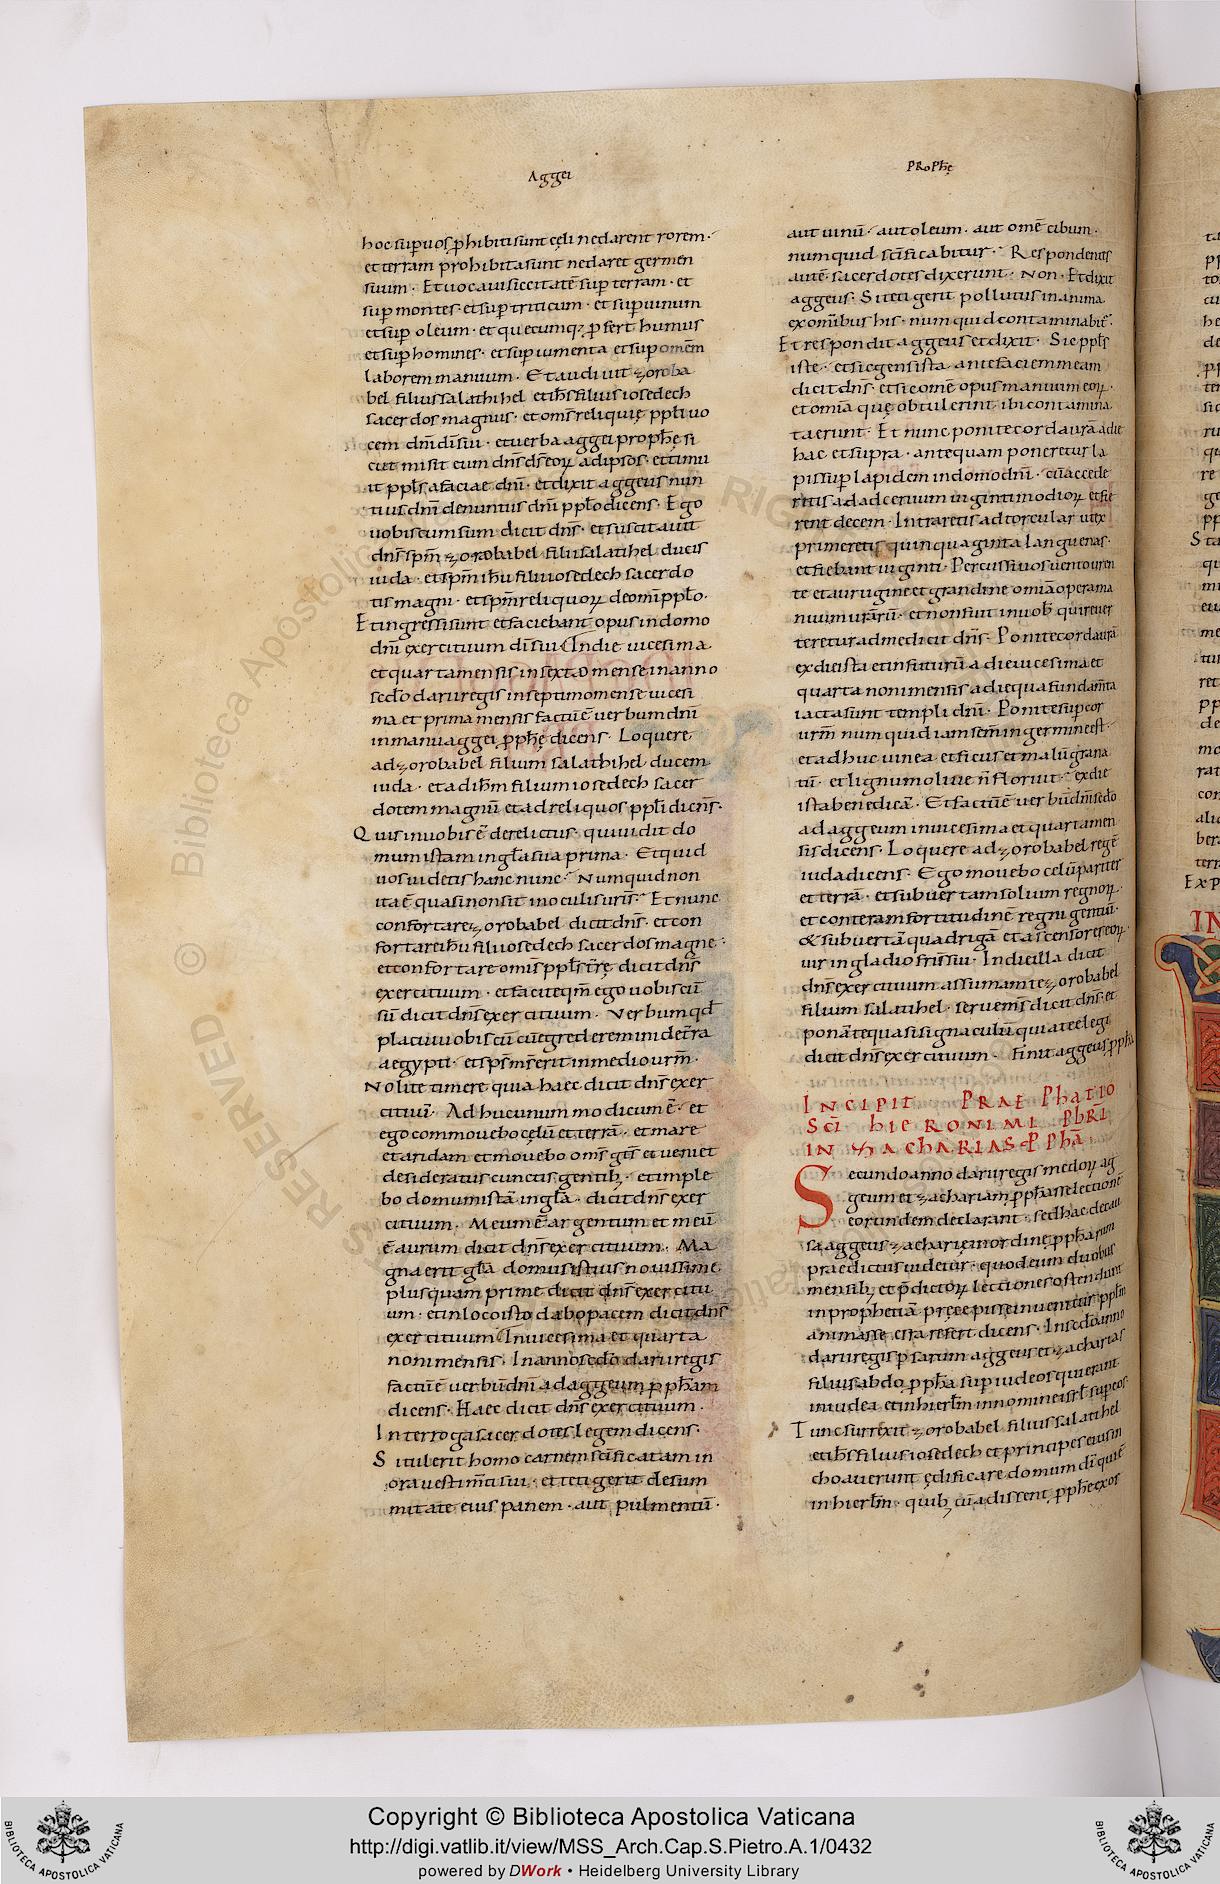 Aggei
Prophę
hoc sup uos ꝓhibiti sunt cęli ne darent rorem·
et terram prohibita sunt ne daret germen
suum· Et uocaui siccitatē sup terram· et
sup montes· et sup triticum· et sup uinum
et sup oleum· et quecumq; ꝓfert humus
et sup homines· et sup iumenta et sup omēm
laborem manuum· Et audiuit zoroba
bel filius salathihel et ih̄s filius iosedech
sacerdos magnus· et om̄s reliquię ppl̄i uo
cem dn̄i dī sui· et uerba aggei proph̄ę si
cut misit eum dn̄s ds̄ eoꝝ ad ipsos· et timu
it ppl̄s a faciae dn̄i· et dixit aggeus nun
tius dn̄i de nuntiis dn̄i ppl̄o dicens· Ego
uobiscum sum dicit dn̄s· et suscitauit
dn̄s spm̄ zorobabel filii salatihel ducis
iuda· et spm̄ ih̄u filii iosedech sacerdo
tis magni· et spm̄ reliquoꝝ de om̄i ppl̄o·
Et ingressi sunt et faciebant opus in domo
dn̄i exercituum dī sui. In die uicesima
et quarta mensis in sexto mense in anno
sed̄o darii regis in septimo mense uicesi
ma et prima mensis factū ē uerbum dn̄i
in manu aggei ꝓph̄ę dicens· Loquere
ad zorobabel filium salathihel ducem
iuda· et ad ih̄m filium iosedech sacer
dotem magnū et ad reliquos ppl̄i dicēns·
Quis in uobis ē derelictus· qui uidit do
mum istam in gl̄a sua prima· Et quid
uos uidetis hanc nunc· Numquid non
ita ē quasi non sit in oculis ur̄is· Et nunc
confortare zorobabel dicit dn̄s· et con
fortare ih̄u fili iosedech sacerdos magne·
et confortare omis ppl̄s t̄rę dicit dn̄s
exercituum· et facite qm̄ ego uobis cū
sū dicit dn̄s exercituum· Verbum qd̄
placui uobis cū cū egrederemini de t̄ra
aegypti· et sps̄ ms̄ erit in medio urm̄·
Nolite timere quia haec dicit dn̄s exer
cituū· Adhuc unum modicum ē· et
ego commouebo cęlū et terrā· et mare
et aridam et mouebo om̄s gēs et ueniet
desideratus cunctis gentib;· et imple
bo domum istā in gl̄a· dicit dn̄s exer
cituum· Meum ē argentum et meū
ē aurum dicit dn̄s exercituum· Ma
gna erit gl̄a domus istius nouissime
plus quam prime dicit dn̄s exercitu
um· et in loco isto dabo pacem dicit dn̄s
exercituum. In uicesima et quarta
noni mensis· In anno sed̄o darii regis
factū ē uerbū dn̄i ad aggeum ꝓph̄am
dicens· Haec dicit dn̄s exercituum·
Interroga sacerdotes legem dicens·
Si tulerit homo carnem sc̄ificatam in
ora uestim̄ti sui· et tetigerit de sum
mitate eius panem· aut pulmentū·
aut uinū· aut oleum· aut omē cibum·
numquid sc̄ificabitur· Respondentes
autē sacerdotes dixerunt· Non· Et dixit
aggeus· Si tetigerit pollutus in anima
ex omībus his· numquid contaminabit̄·
Et respondit aggeus et dixit· Sic ppl̄s
iste· et sic gens ista ante faciem meam
dicit dn̄s· et sic omē opus manuum eoꝝ·
et omīa quę obtulerint ibi contamina
ta erunt· Et nunc ponite corda urā a die
hac et supra· antequam poneretur la
pis sup lapidem in domo dn̄i· cū accede
retis ad aceruum uiginti modioꝝ et fie
rent decem· Intraretis ad torcular ut ex
primeretis quinquaginta languenas·
et fiebant uiginti· Percussi uos uento uren
te et aurugine et grandine omīa opera ma
nuum urārū· et non fuit in uob̄ qui reuer
teretur ad me dicit dn̄s· Ponite corda urā
ex die ista et in futurū a die uicesima et
quarta noni mensis a die qua fundam̄ta
iacta sunt templi dn̄i· Ponite sup cor
urm̄ numquid iam sem̄ in germine est·
et adhuc uinea et ficus et malū grana
tū· et lignum oliue n̄ floruit· ex die
ista benedicā· Et factū ē uerbū dn̄i sed̄o
ad aggeum in uicesima et quarta men
sis dicens· Loquere ad zorobabel regē
iuda dicens· Ego mouebo celū pariter
et terrā· et subuertam solium regnoꝝ·
et conteram fortitudinē regni gentiū·
& subuertā quadrigā et ascensores eoꝝ·
uir in gladio fris̄ sui· In die illa dicit
dn̄s exercituum assumam te zorobabel
filium salatihel· serue ms̄ dicit dn̄s· et
ponā te quasi signaculū quia te elegi
dicit dn̄s exercituum· Finit aggeus ꝓpha
INCIPIT PRAEPhATIO
SC̄I hIERONIMI PbRI
IN ZAChARIAS PPhĀ
Secundo anno darii regis medoꝝ ag
geum et zachariam ꝓph̄asse lectionē
eorundem declarant· sed hac de cau
sa aggeus zacharię in ordine ꝓph̄arum
praedictus uidetur· quod eum duobus
mensib; et p̄dictoꝝ lectiones ostendunt
in prophetiā pręcepisse inuenitur ppl̄m
animasse esra refert dicens· In sed̄o anno
darii regis psarum aggeus et zacharias
filius abdo ꝓph̄a sup iudeos qui erant
in iudea et in hierl̄m in nomine isrl̄ sup eos·
Tunc surrexit zorobabel filius salatihel
et ih̄s filius iosedech et principes eius in
choauerunt ędificare domum dī quię
in hierl̄m· quib; cū adissent ꝓph̄e exos
Copyright © Biblioteca Apostolica Vaticana
http://digi.vatlib.it/view/MSS_Arch.Cap.S.Pietro.A.1/0432
powered by DWork • Heidelberg University Library